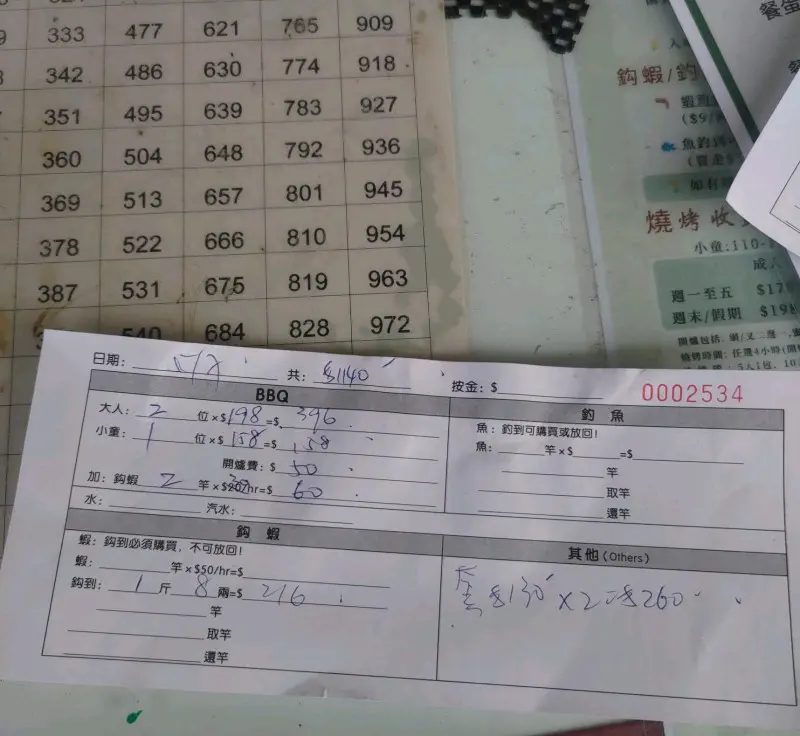 333 477 621 765 909
342 486 630 774 918
351 495 639 783 927
360 504 648 792 936
369 513 657 801 945
378 522 666 810 954
387 531 675 819 963
540 684 828 972
鈎蝦/釣
($9/
燒烤收
小童:110-1
成人
週一至五 $178
週末/假期 $198
日期: 共: $1140 按金: $ 0002534
BBQ
大人: 2 位×$198=$ 396
小童: 1 位×$158=$ 158
開爐費: $ 50
加: 鈎蝦 2 竿×$30/hr=$ 60
水: 汽水:
釣魚
魚: 釣到可購買或放回!
魚: 竿×$ =$
竿
取竿
還竿
鈎蝦
蝦: 鈎到必須購買,不可放回!
蝦: 竿×$50/hr=$
鈎到: 1 斤 8 兩=$ 216
竿
取竿
還竿
其他(Others)
$130 ×2=$260